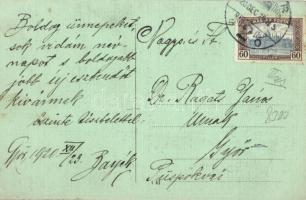 Boldog ünnepeket,
sok irdam név-
napot s boldogabb
jobb új esztendőt
kivánnek
őszinte tisztelettel
Győr 1920 XII/23. Bayék
Nagys és It.
Dr. Ragats János
Urnak
Győr
Püspökvár
60